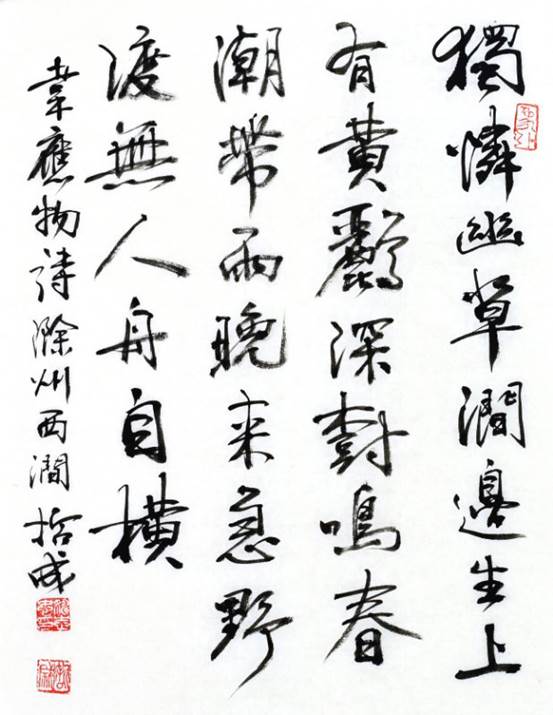 獨憐幽草澗邊生上
有黃鸝深樹鳴春
潮帶雨晚來急野
渡無人舟自橫
韋應物詩滁州西澗